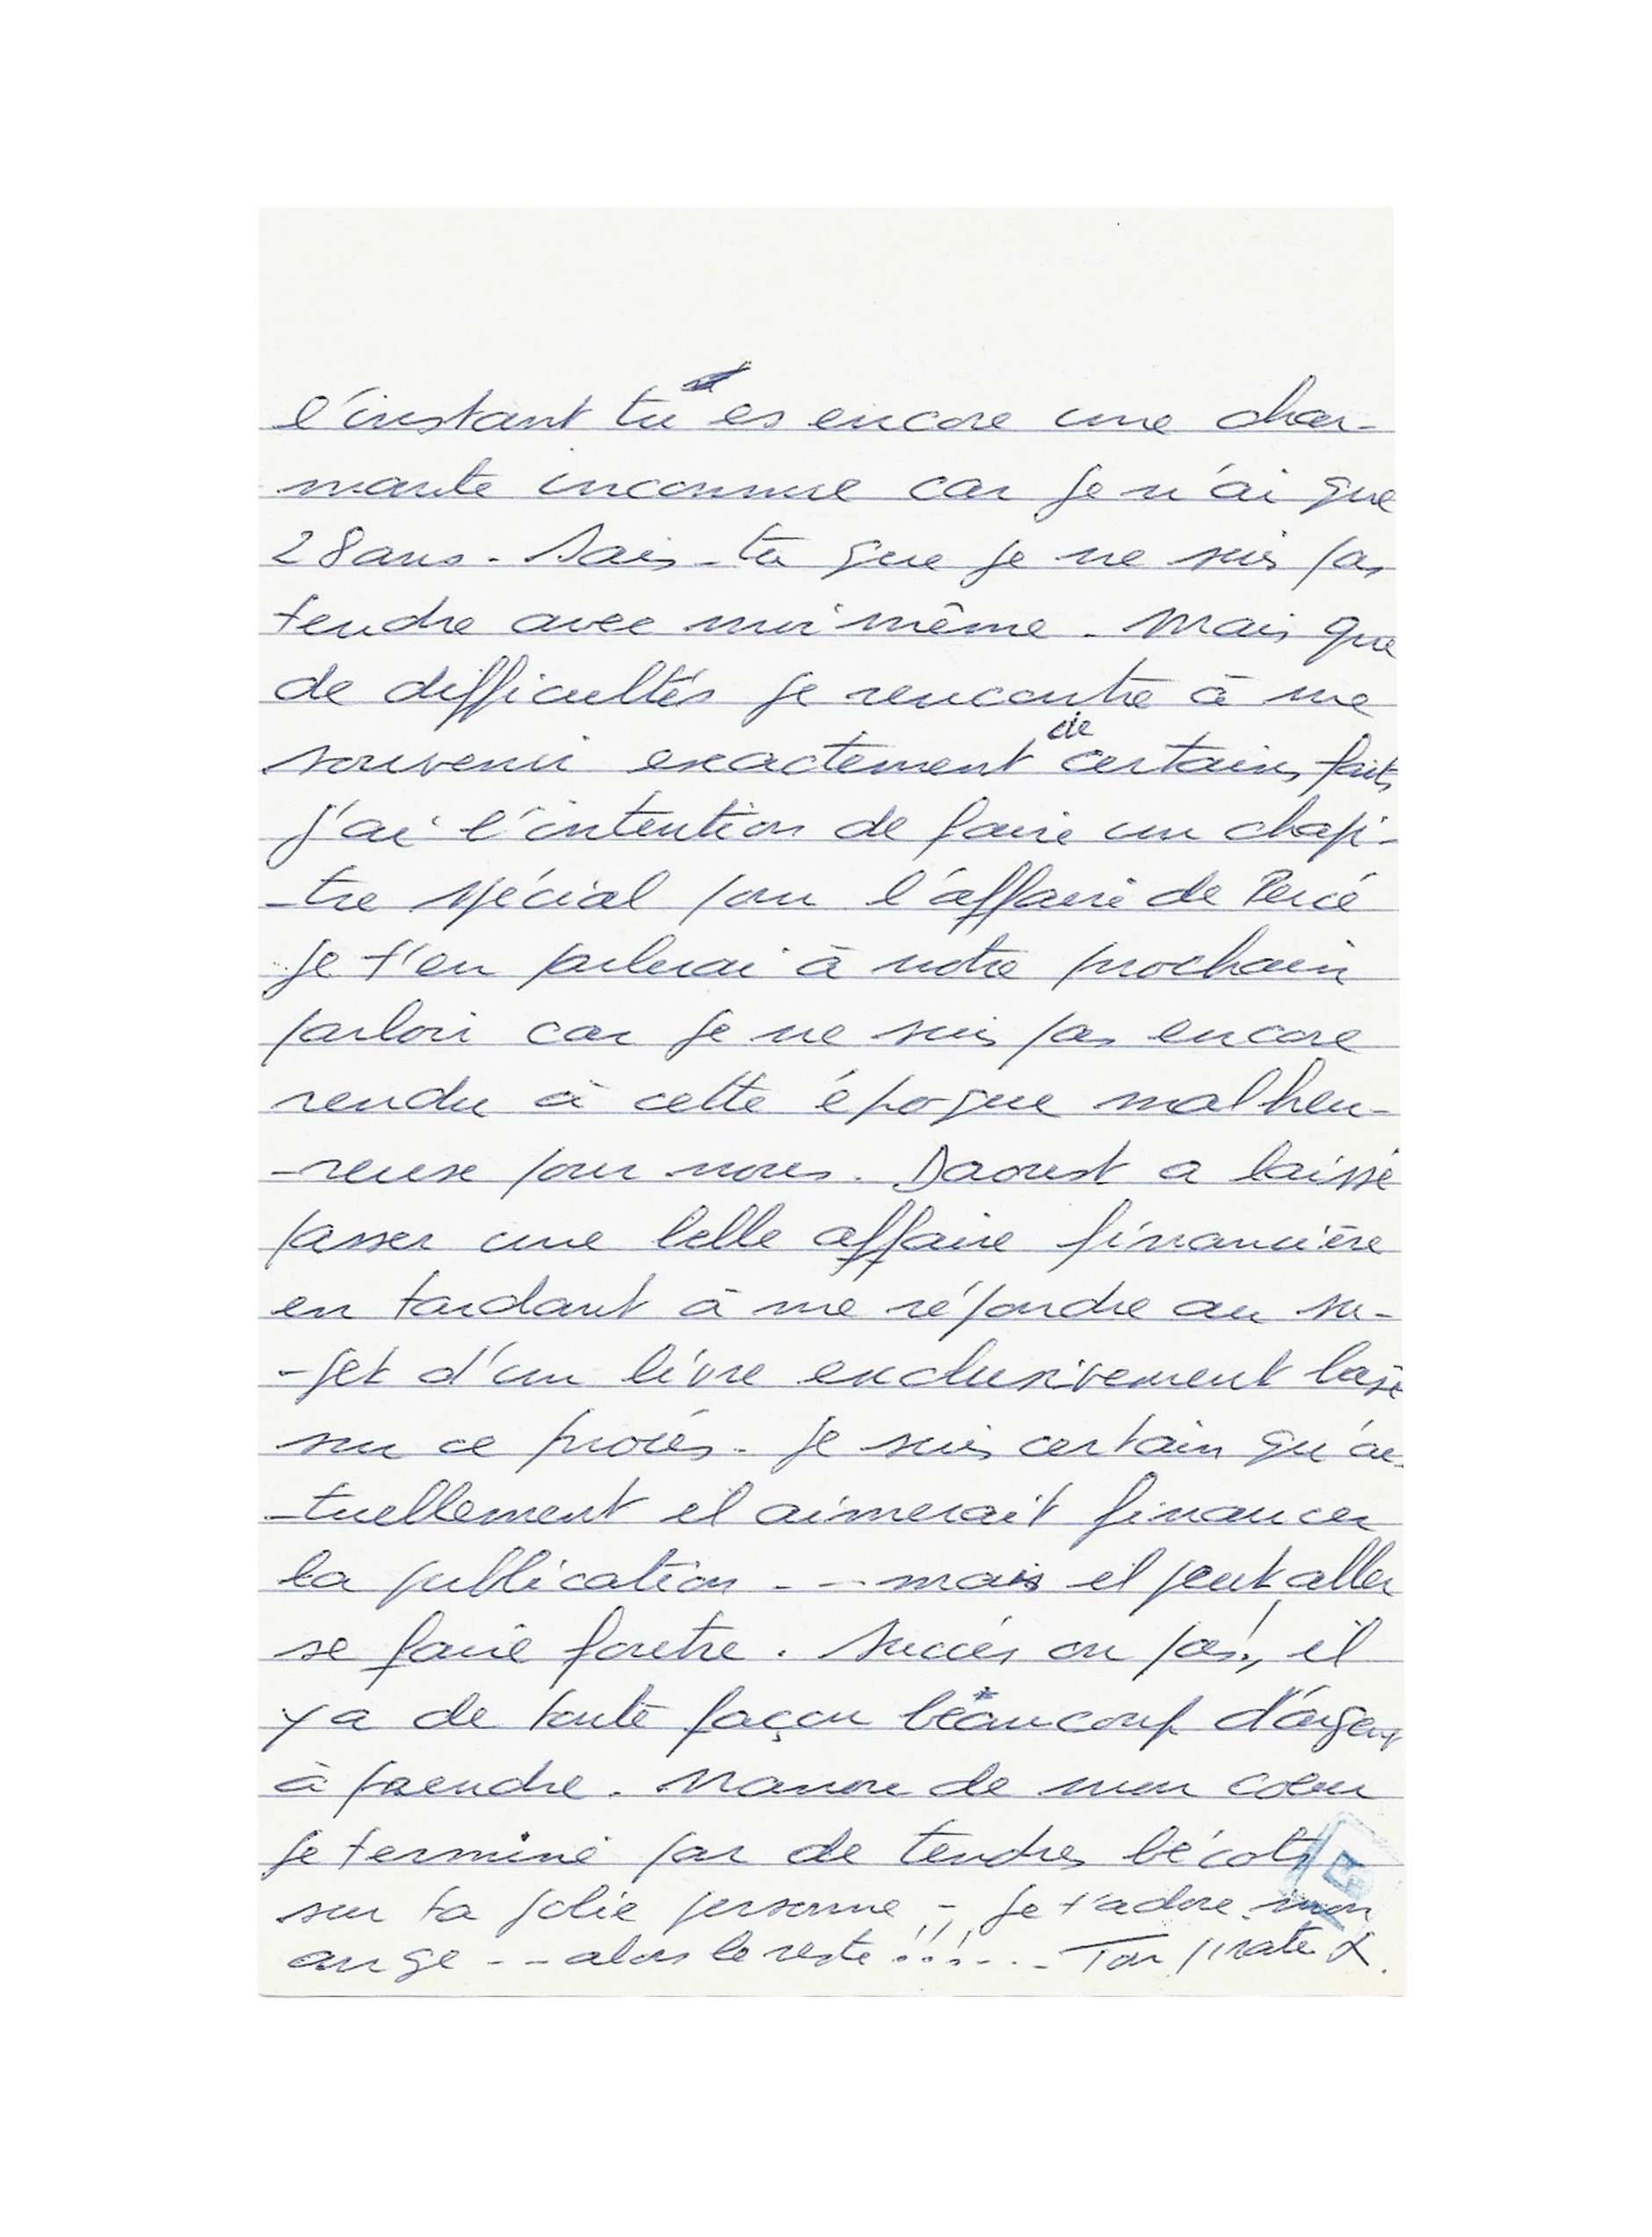 l'instant tu es encore une char-
mante inconnue car je n'ai que
28 ans - Sais-tu que je ne suis pas
tendre avec moi même - Mais que
de difficultés je rencontre à me
souvenir exactement de certains faits
j'ai l'intention de faire un chapi-
-tre spécial pour l'affaire de Percé
je t'en parlerai à notre prochain
parloir car je ne suis pas encore
rendu à cette époque malheu-
-reuse pour nous. Daoust a laissé
passer une belle affaire financière
en tardant à me répondre au su-
-jet d'un livre exclusivement basé
sur ce procès - je suis certain qu'ac-
-tuellement il aimerait financer
la publication - -- mais il peut aller
se faire foutre. Succès ou pas!, il
y a de toute façon beaucoup d'argent
à prendre. Nanou de mon cœur
je termine par de tendres bécots
sur ta jolie personne - je t'adore mon
ange -- alors le reste !!!... Ton pirate X.